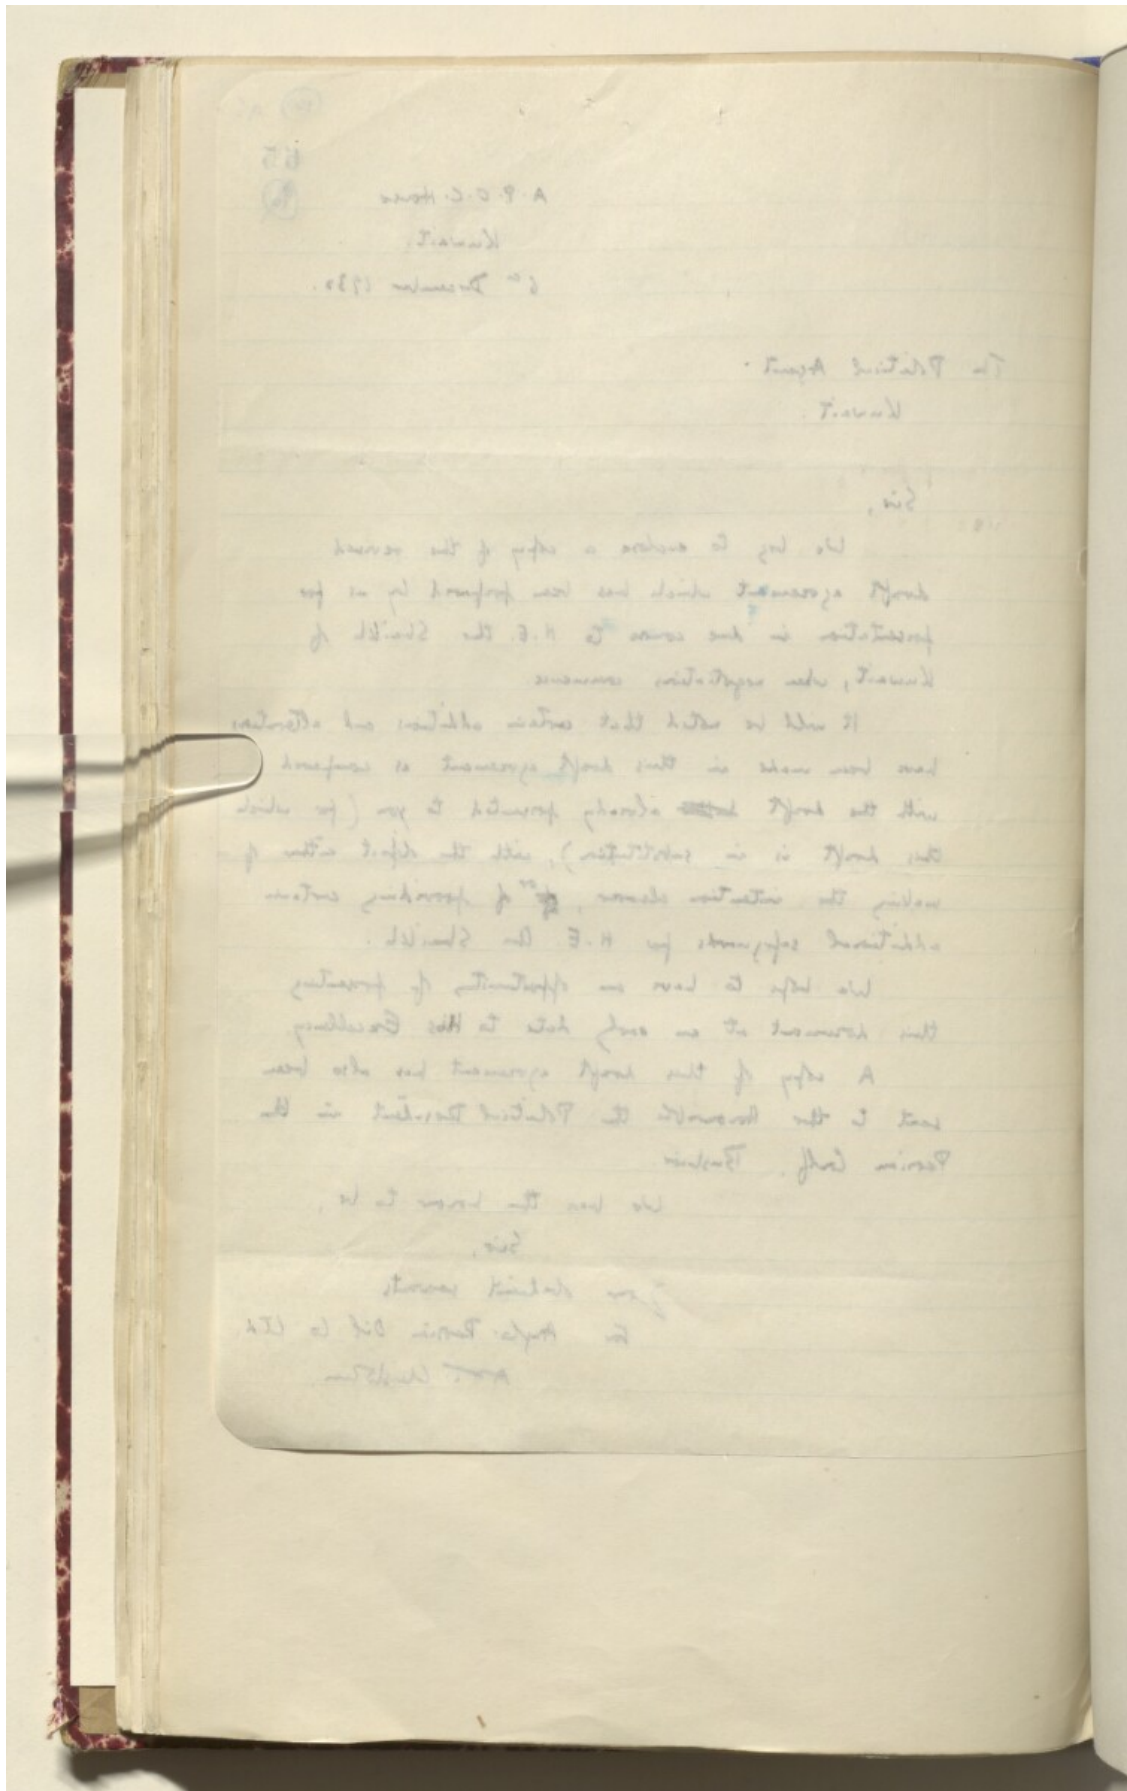 65
A.P.O.C. House
Kuwait.
6th December 193
The Political Agent.
Kuwait.
Sir,
We beg to enclose a copy of the revised
draft agreement which has been prepared by us for
presentation in due course to H.E. the Shaikh of
Kuwait, when negotiations commence
It will be noted that certain additions and alterations
have been made in this draft agreement as compared
with the draft already presented to you (for which
this draft is in substitution), with the object either of
making the intention clearer, or of providing certain
additional safeguards for H.E. the Shaikh.
We hope to have an opportunity of presenting
this document at an early date to His Excellency
A copy of this draft agreement has also been
sent to the Honourable the Political Resident in the
Persian Gulf, Bushire
We have the honour to be,
Sir,
Your obedient servants
For Anglo-Persian Oil Co Ltd